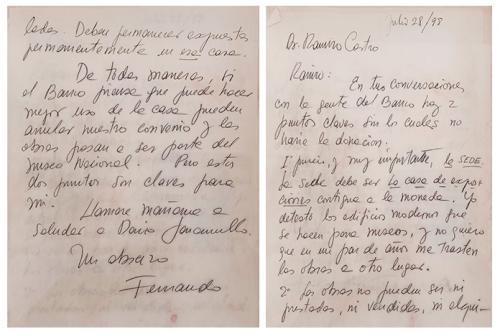 julio 28/98
Dr. Ramiro Castro
Ramiro: En tus conversaciones
con la gente del Banco hay 2
puntos claves sin los cuales no
haria la donacion:
y muy importante, la SEDE.
La sede debe ser la casa de expo-
siciones contigua a la moneda. Yo
detesto los edificios modernos que
se hacen para museos, y no quiero
que en un par de años me trasteen
las obras a otro lugar.
2° Las obras no pueden ser ni
prestadas, ni vendidas, ni alqui-
ladas. Deben permanecer expuestas
permanentemente en esa casa.
De todas maneras, si
el Banco piensa que puede hacer
mejor uso de la casa pueden
anular nuestro convenio y las
obras pasan a ser parte del
museo Nacional. Pero estos
dos puntos son claves para
mi.
Llamaré mañana a
saludar a Dario Jaramillo.
Un abrazo
Fernando